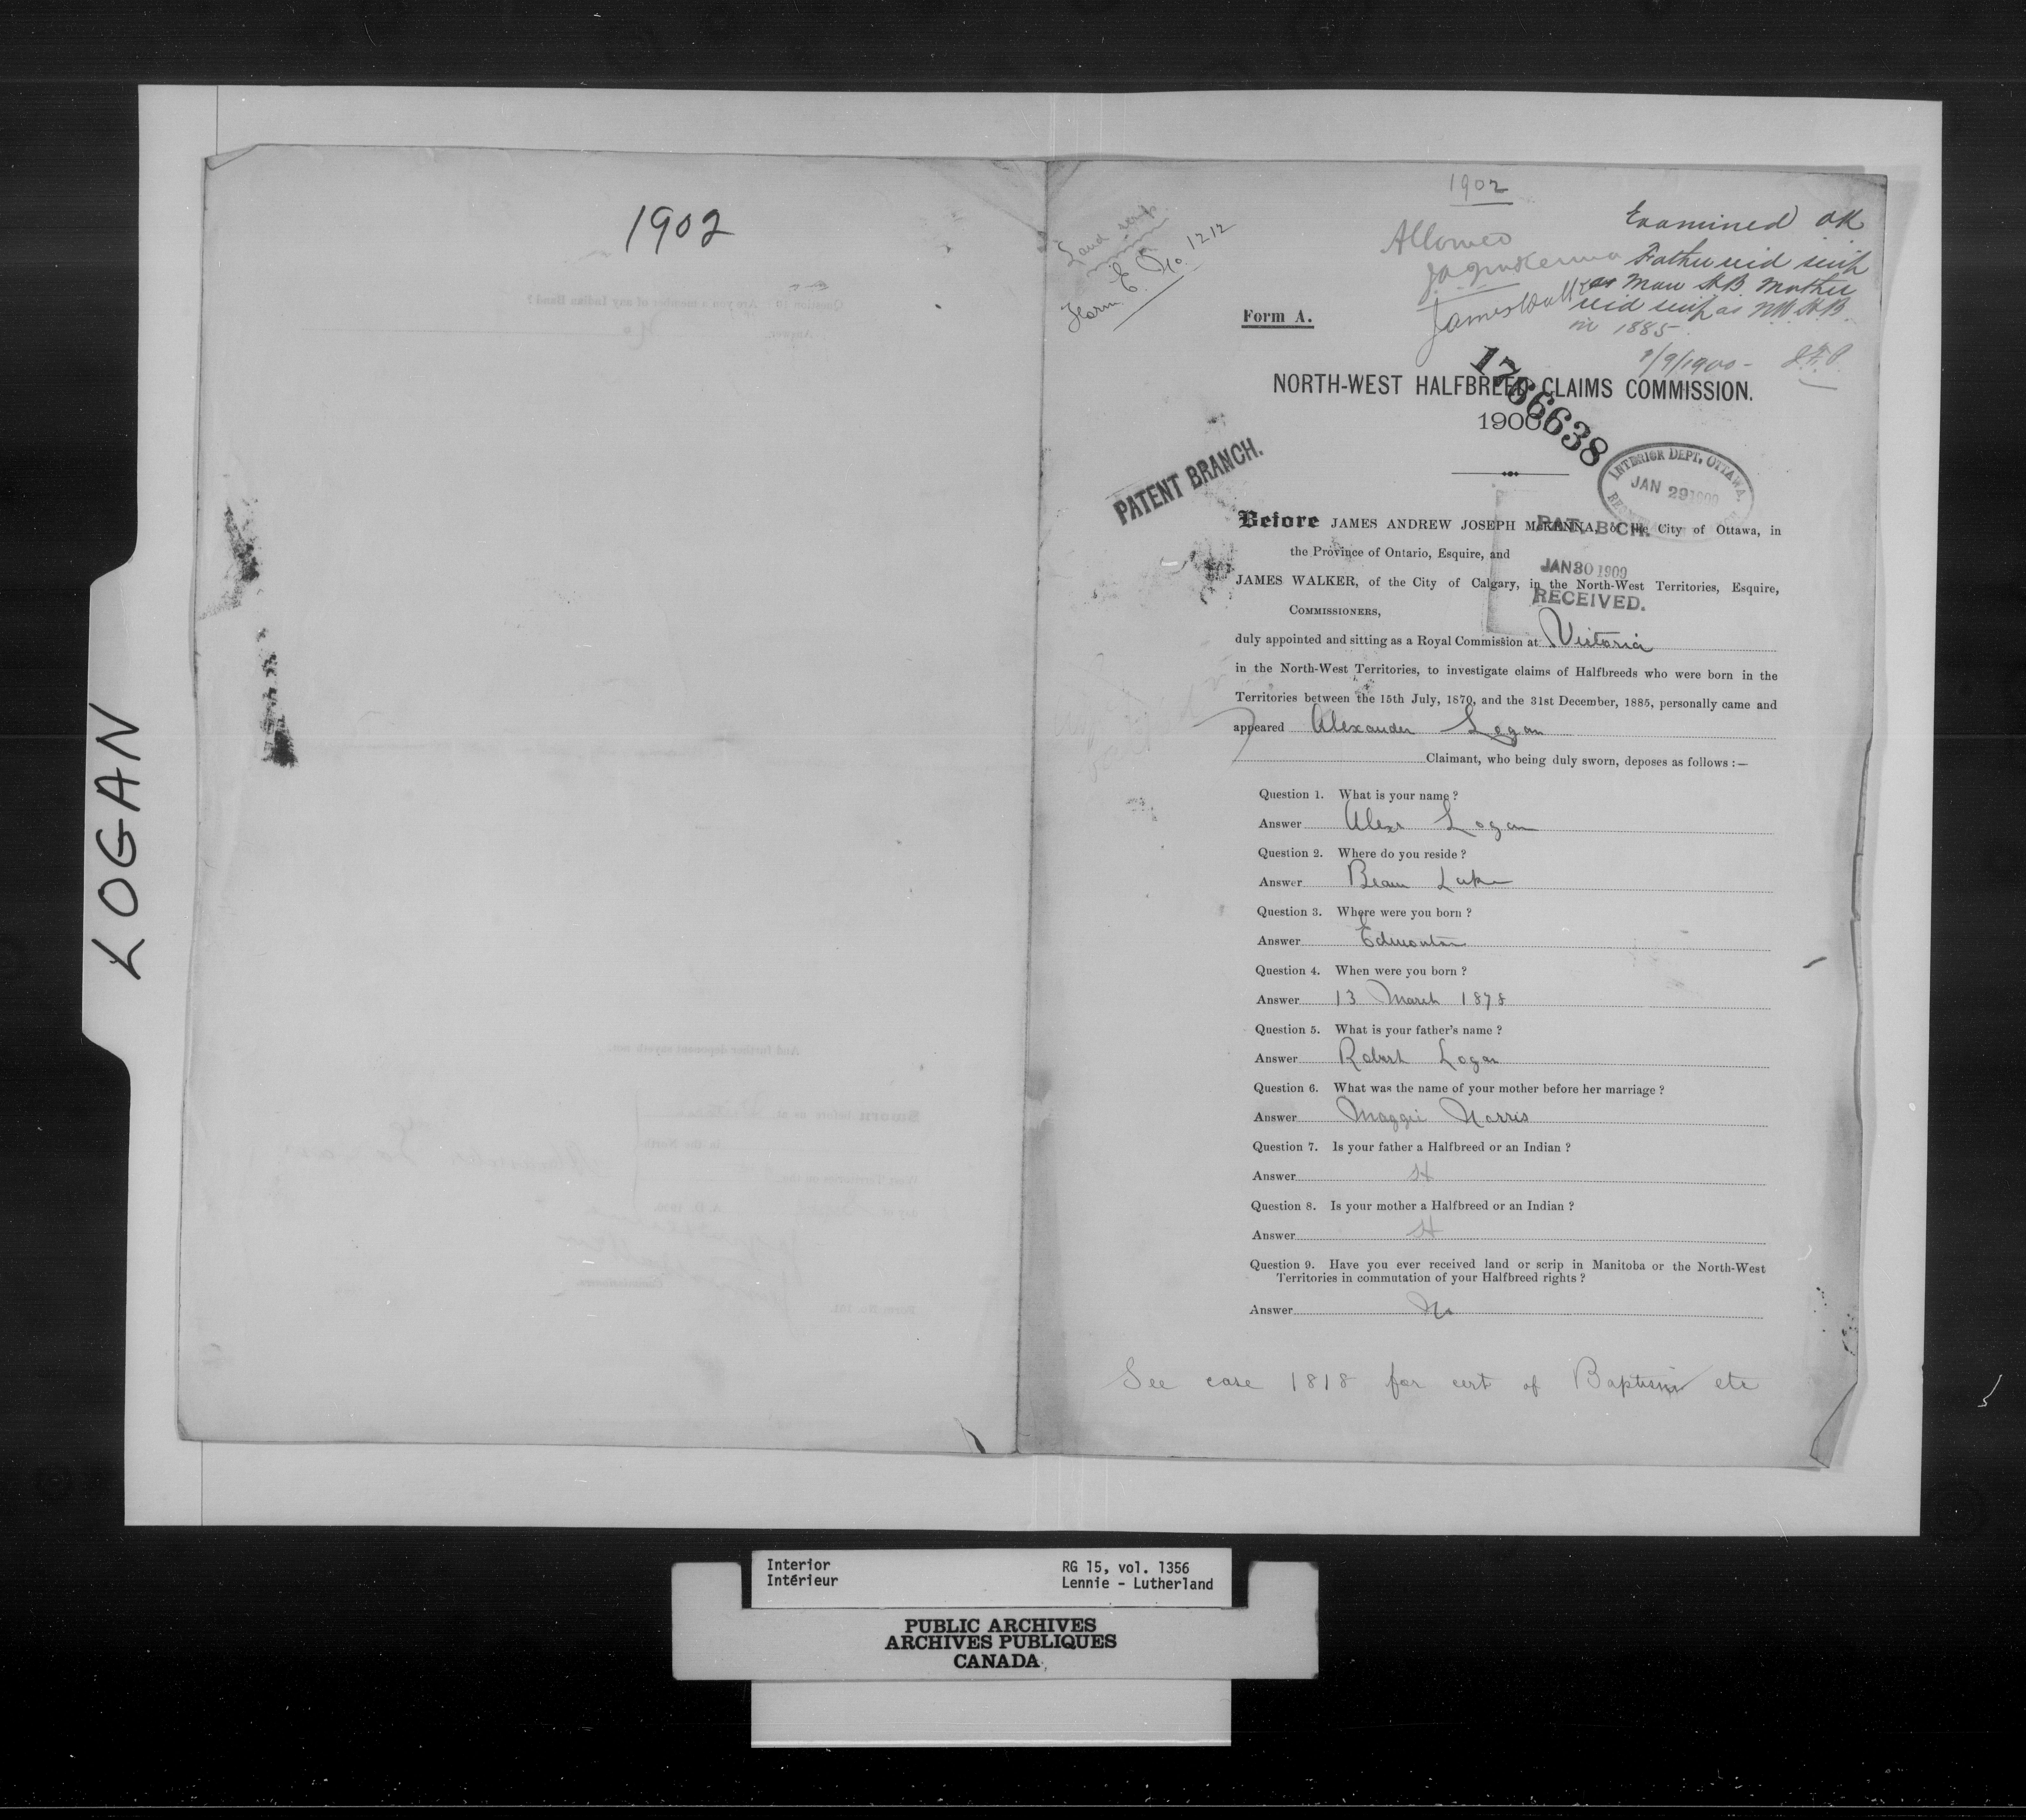 LOGAN
1902
1902
Land scrip
Form E. No. 1212
Allowed
JAJ McKenna
James Walker
Examined OK
Father recd scrip
as Man HB Mother
recd scrip as NW HB
in 1885
9/1900
Form A.
1766638
NORTH-WEST HALFBREED CLAIMS COMMISSION.
1900
PATENT BRANCH.
INTERIOR DEPT, OTTAWA.
JAN 29 1909
PAT. BCH.
JAN 30 1909
RECEIVED.
Before JAMES ANDREW JOSEPH McKENNA, of the City of Ottawa, in
the Province of Ontario, Esquire, and
JAMES WALKER, of the City of Calgary, in the North-West Territories, Esquire,
COMMISSIONERS,
duly appointed and sitting as a Royal Commission at Victoria
in the North-West Territories, to investigate claims of Halfbreeds who were born in the
Territories between the 15th July, 1870, and the 31st December, 1885, personally came and
appeared Alexander Logan
Claimant, who being duly sworn, deposes as follows :—
Question 1. What is your name ?
Answer Alexr Logan
Question 2. Where do you reside ?
Answer Beaver Lake
Question 3. Where were you born ?
Answer Edmonton
Question 4. When were you born ?
Answer 13 March 1878
Question 5. What is your father's name ?
Answer Robert Logan
Question 6. What was the name of your mother before her marriage ?
Answer Maggie Norris
Question 7. Is your father a Halfbreed or an Indian ?
Answer H
Question 8. Is your mother a Halfbreed or an Indian ?
Answer H
Question 9. Have you ever received land or scrip in Manitoba or the North-West
Territories in commutation of your Halfbreed rights ?
Answer No
See case 1818 for cert of Baptism etc
Interior RG 15, vol. 1356
Intérieur Lennie - Lutherland
PUBLIC ARCHIVES
ARCHIVES PUBLIQUES
CANADA